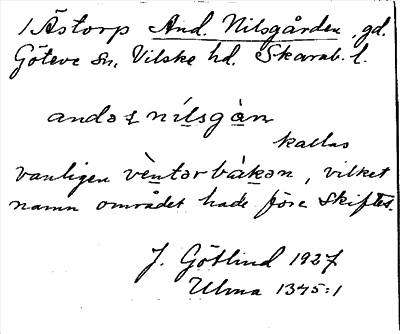 1 Ästorp And. Nilsgården, gd.
Göteve sn, Vilske hd. Skarab. l.
andəș nílsgàn
kallas
vanligen vèntərbákən, vilket
namn området hade före skiftet.
J. Götlind 1927
Ulma 1345:1